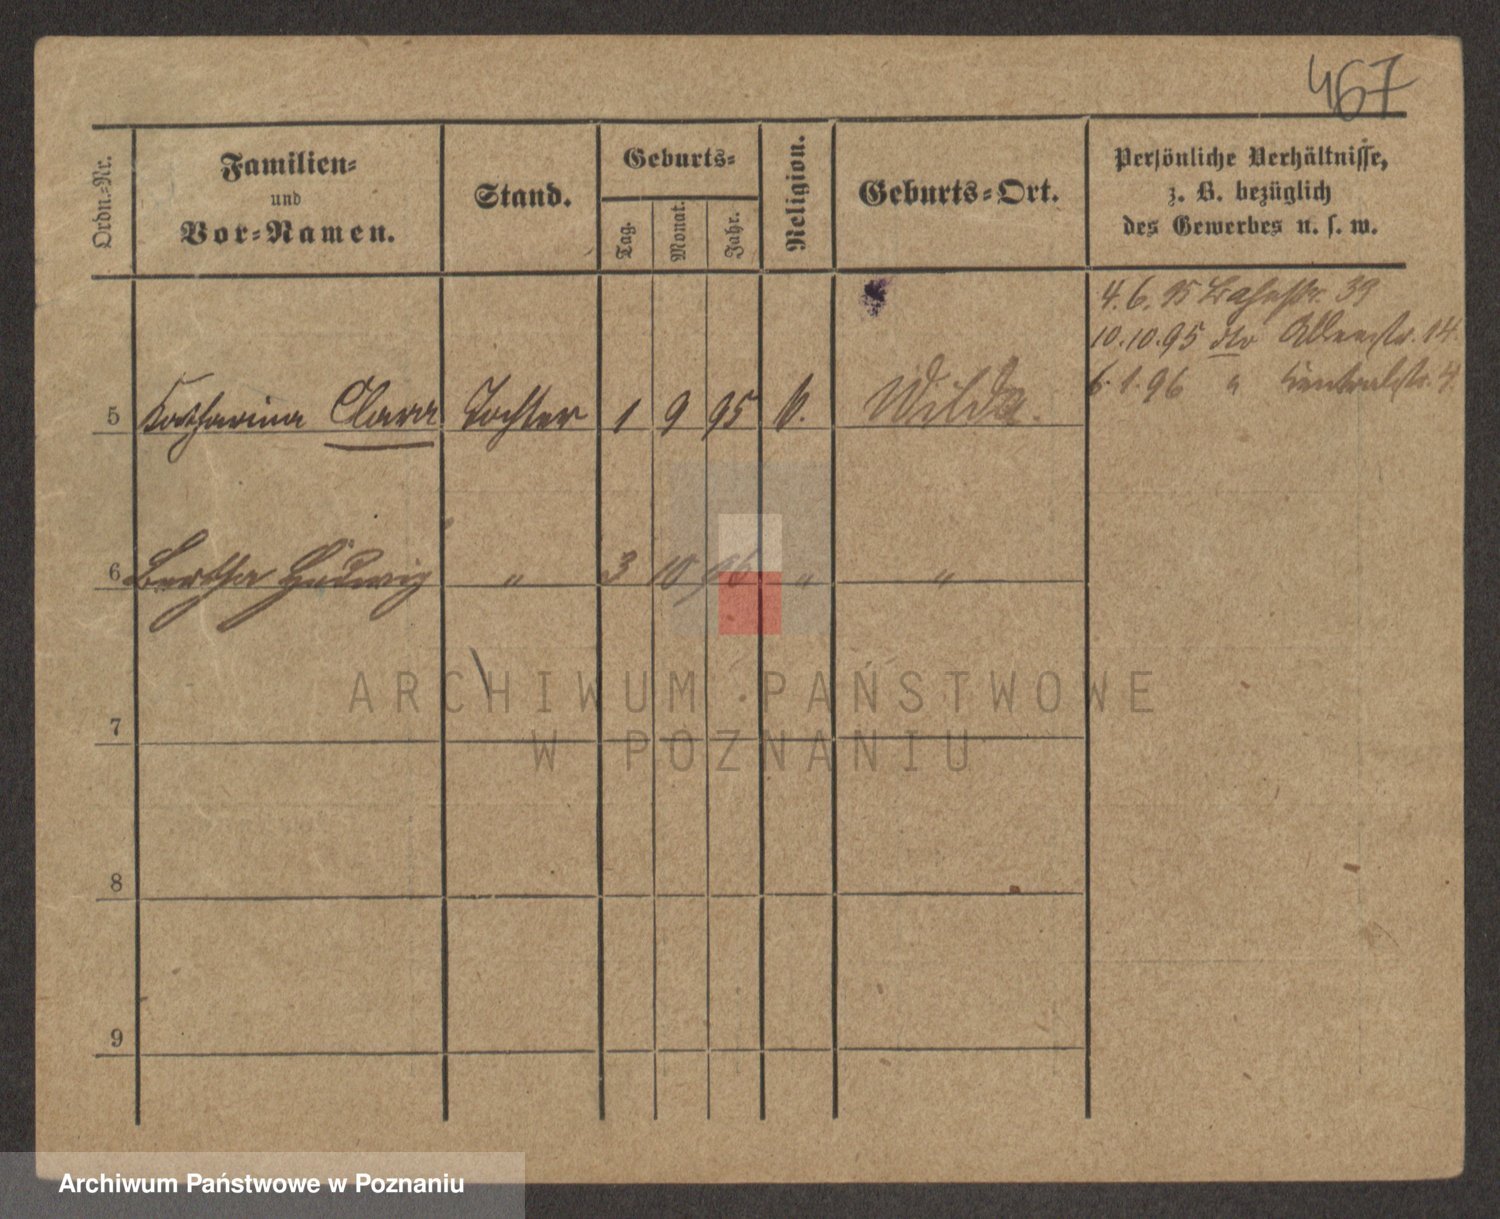 467
Ordn.-Nr.
Familien-
und
Vor-Namen.
Stand.
Geburts-
Tag.
Monat.
Jahr.
Religion.
Geburts-Ort.
Persönliche Verhältnisse,
z. B. bezüglich
des Gewerbes u. s. w.
4. 6. 95 Bahnstr. 39
10. 10. 95 dto 14.
6. 1. 96 " 4.
5 Katharina Clara Tochter 1 9 95 k. Wilda.
6 Bertha Hedwig " 3 10 96 " "
7
8
9
ARCHIWUM PAŃSTWOWE
W POZNANIU
Archiwum Państwowe w Poznaniu